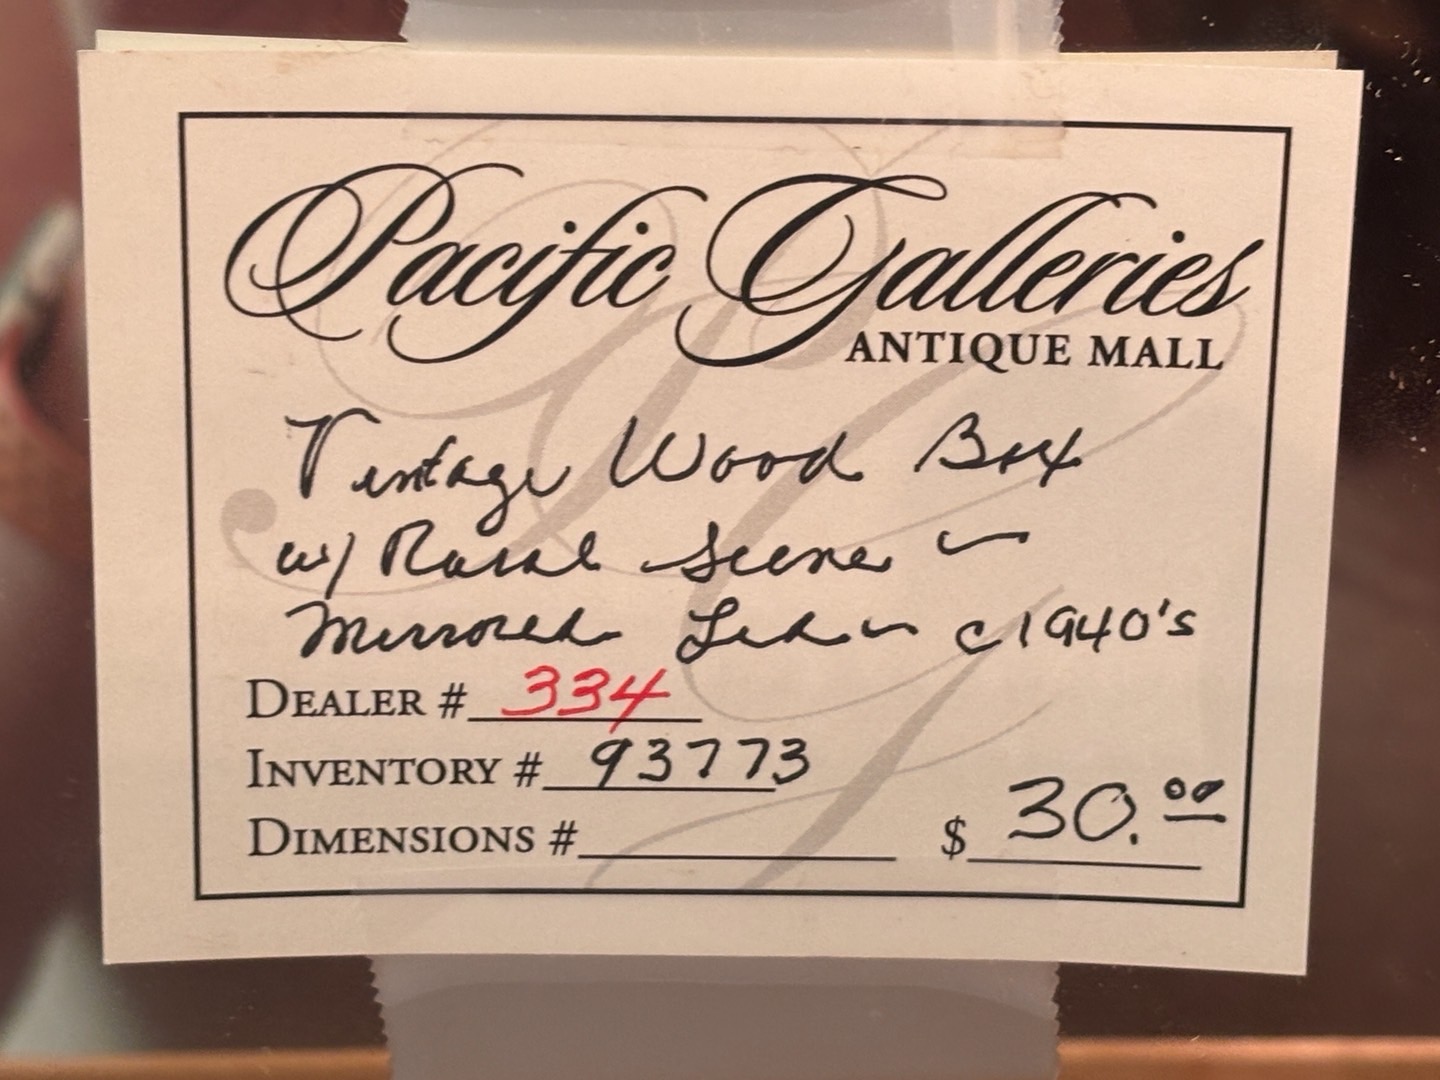 Pacific Galleries
ANTIQUE MALL
Vintage Wood Box
w/ Rural Scene ~
Mirrored Lid ~ c1940's
DEALER # 334
INVENTORY # 93773
DIMENSIONS #
$ 30.00